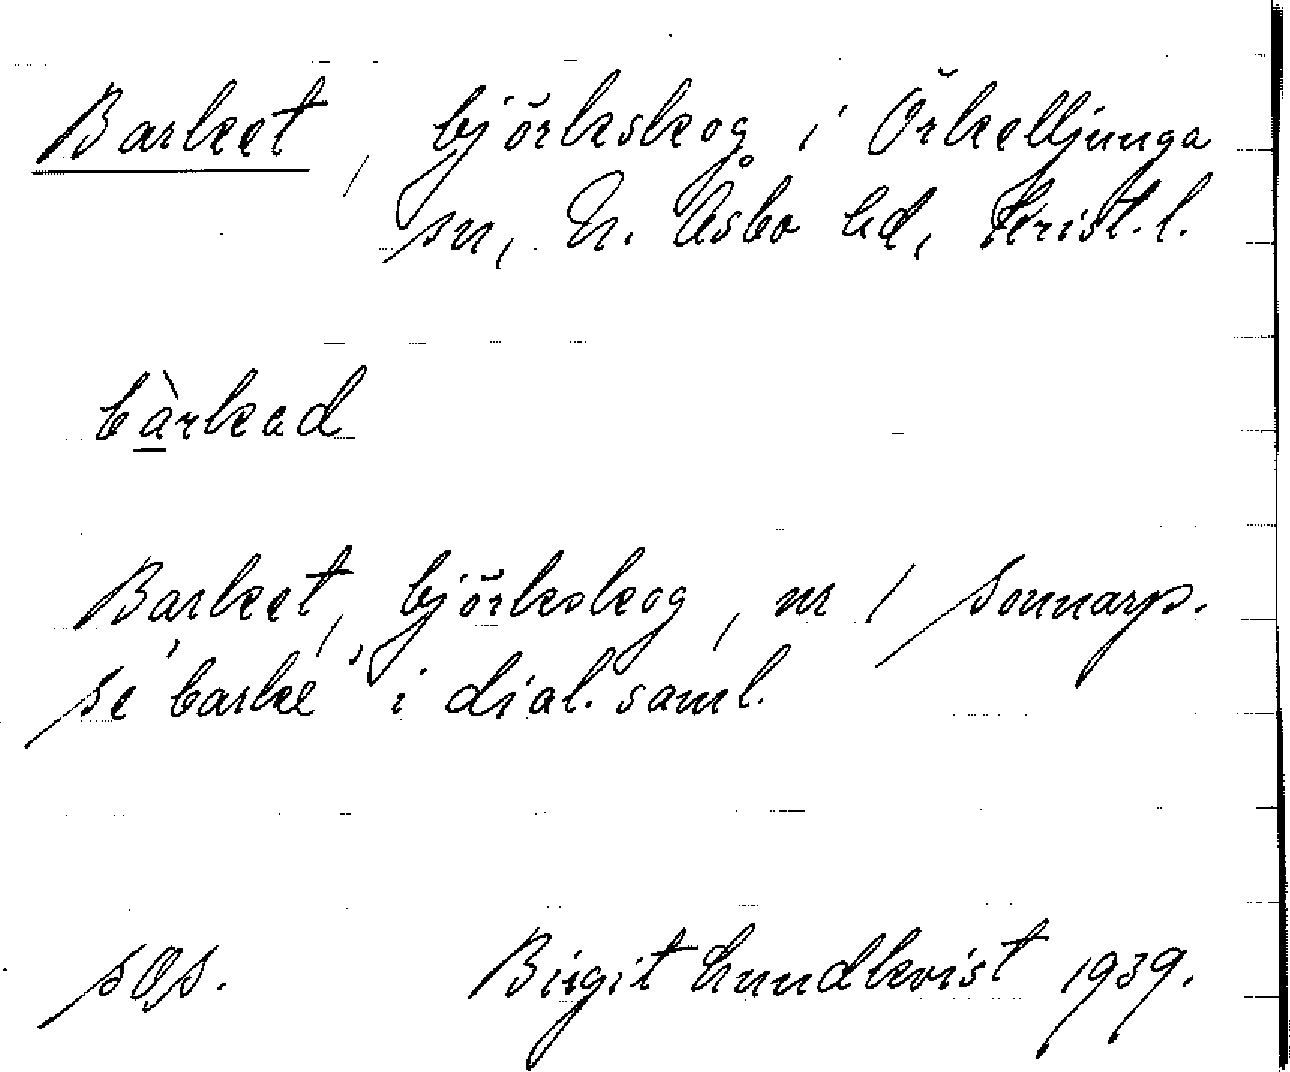 Barket, björkskog i Örkelljunga
sn, N. Åsbo hd, Krist. l.
bàrkad
Barket, björkskog, nr 1 Sonnarp.
se "barke" i dial. saml.
sgs.
Birgit Lundkvist 1939.